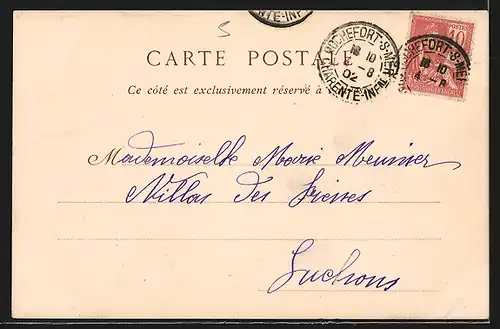 5
ENTE-INF
CARTE POSTALE
Ce côté est exclusivement réservé à
ROCHEFORT-S-MER
18 10
4 -8
02
CHARENTE-INFRE
10
ROCHEFORT-S-MER
18 10
4 -8
Mademoiselle Marie Meunier
Villas des
Luchons